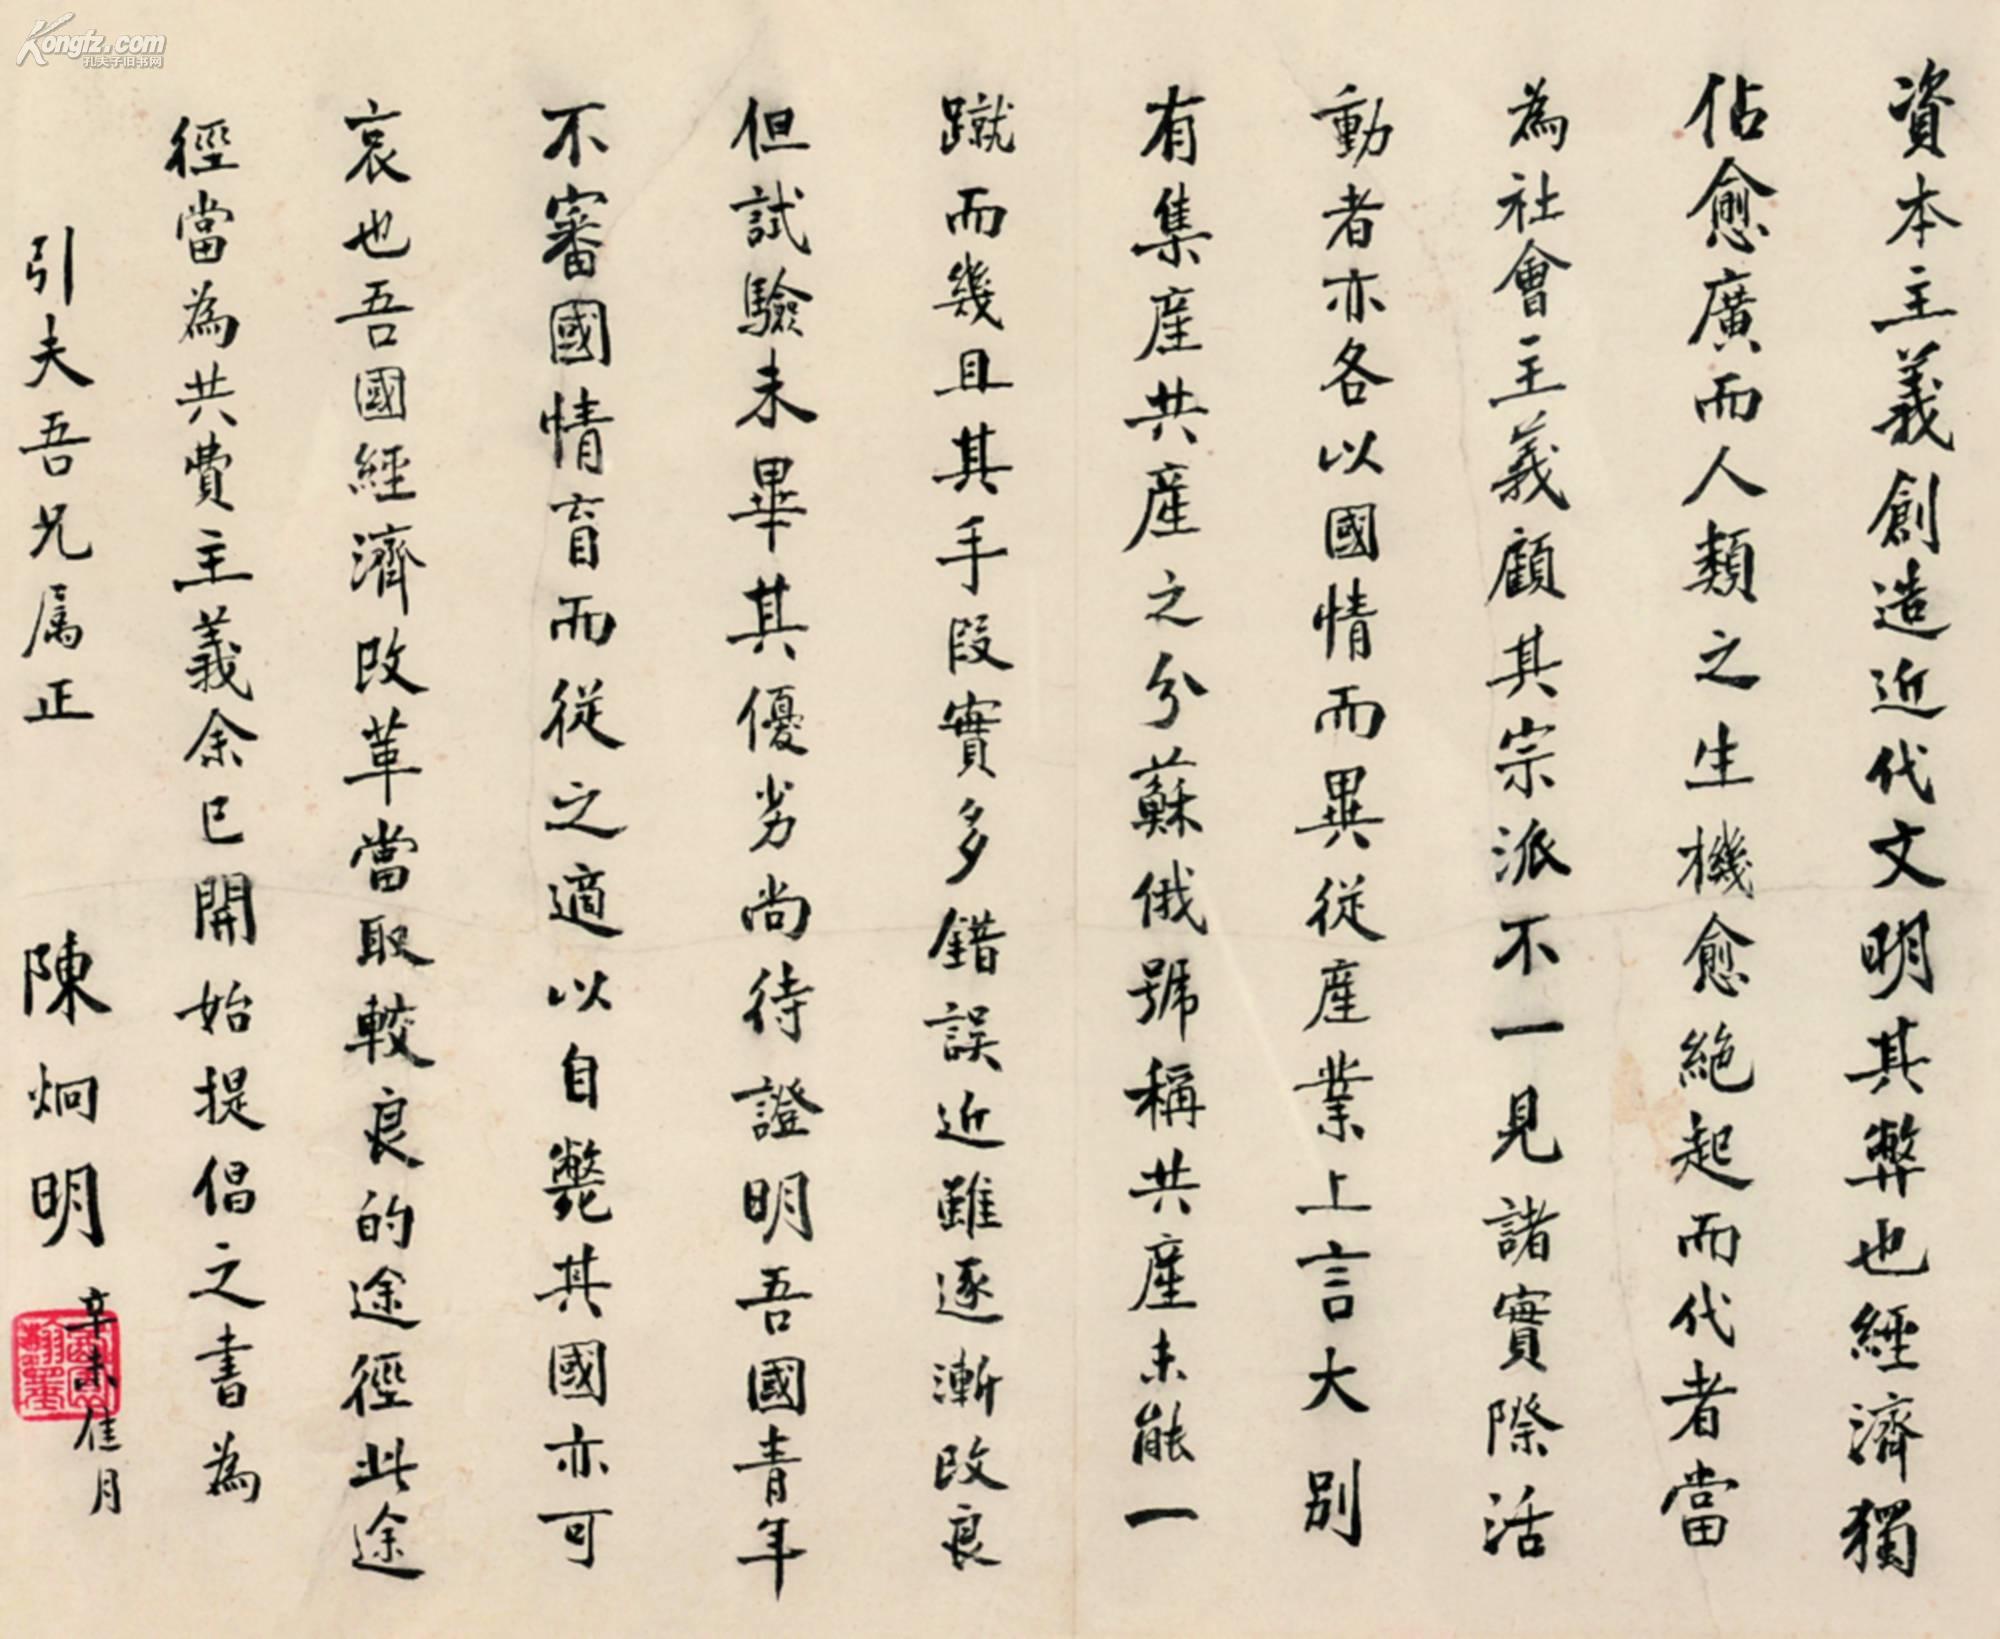 資本主義創造近代文明其弊也經濟獨
佔愈廣而人類之生機愈絕起而代者當
為社會主義顧其宗派不一見諸實際活
動者亦各以國情而異從產業上言大別
有集產共產之分蘇俄號稱共產未能一
蹴而幾且其手段實多錯誤近雖逐漸改良
但試驗未畢其優劣尚待證明吾國青年
不審國情盲而從之適以自斃其國亦可
哀也吾國經濟改革當取較良的途徑此途
徑當為共費主義余已開始提倡之書為
引夫吾兄属正
陳炯明
辛未佳月
Kongfz.com
孔夫子旧书网